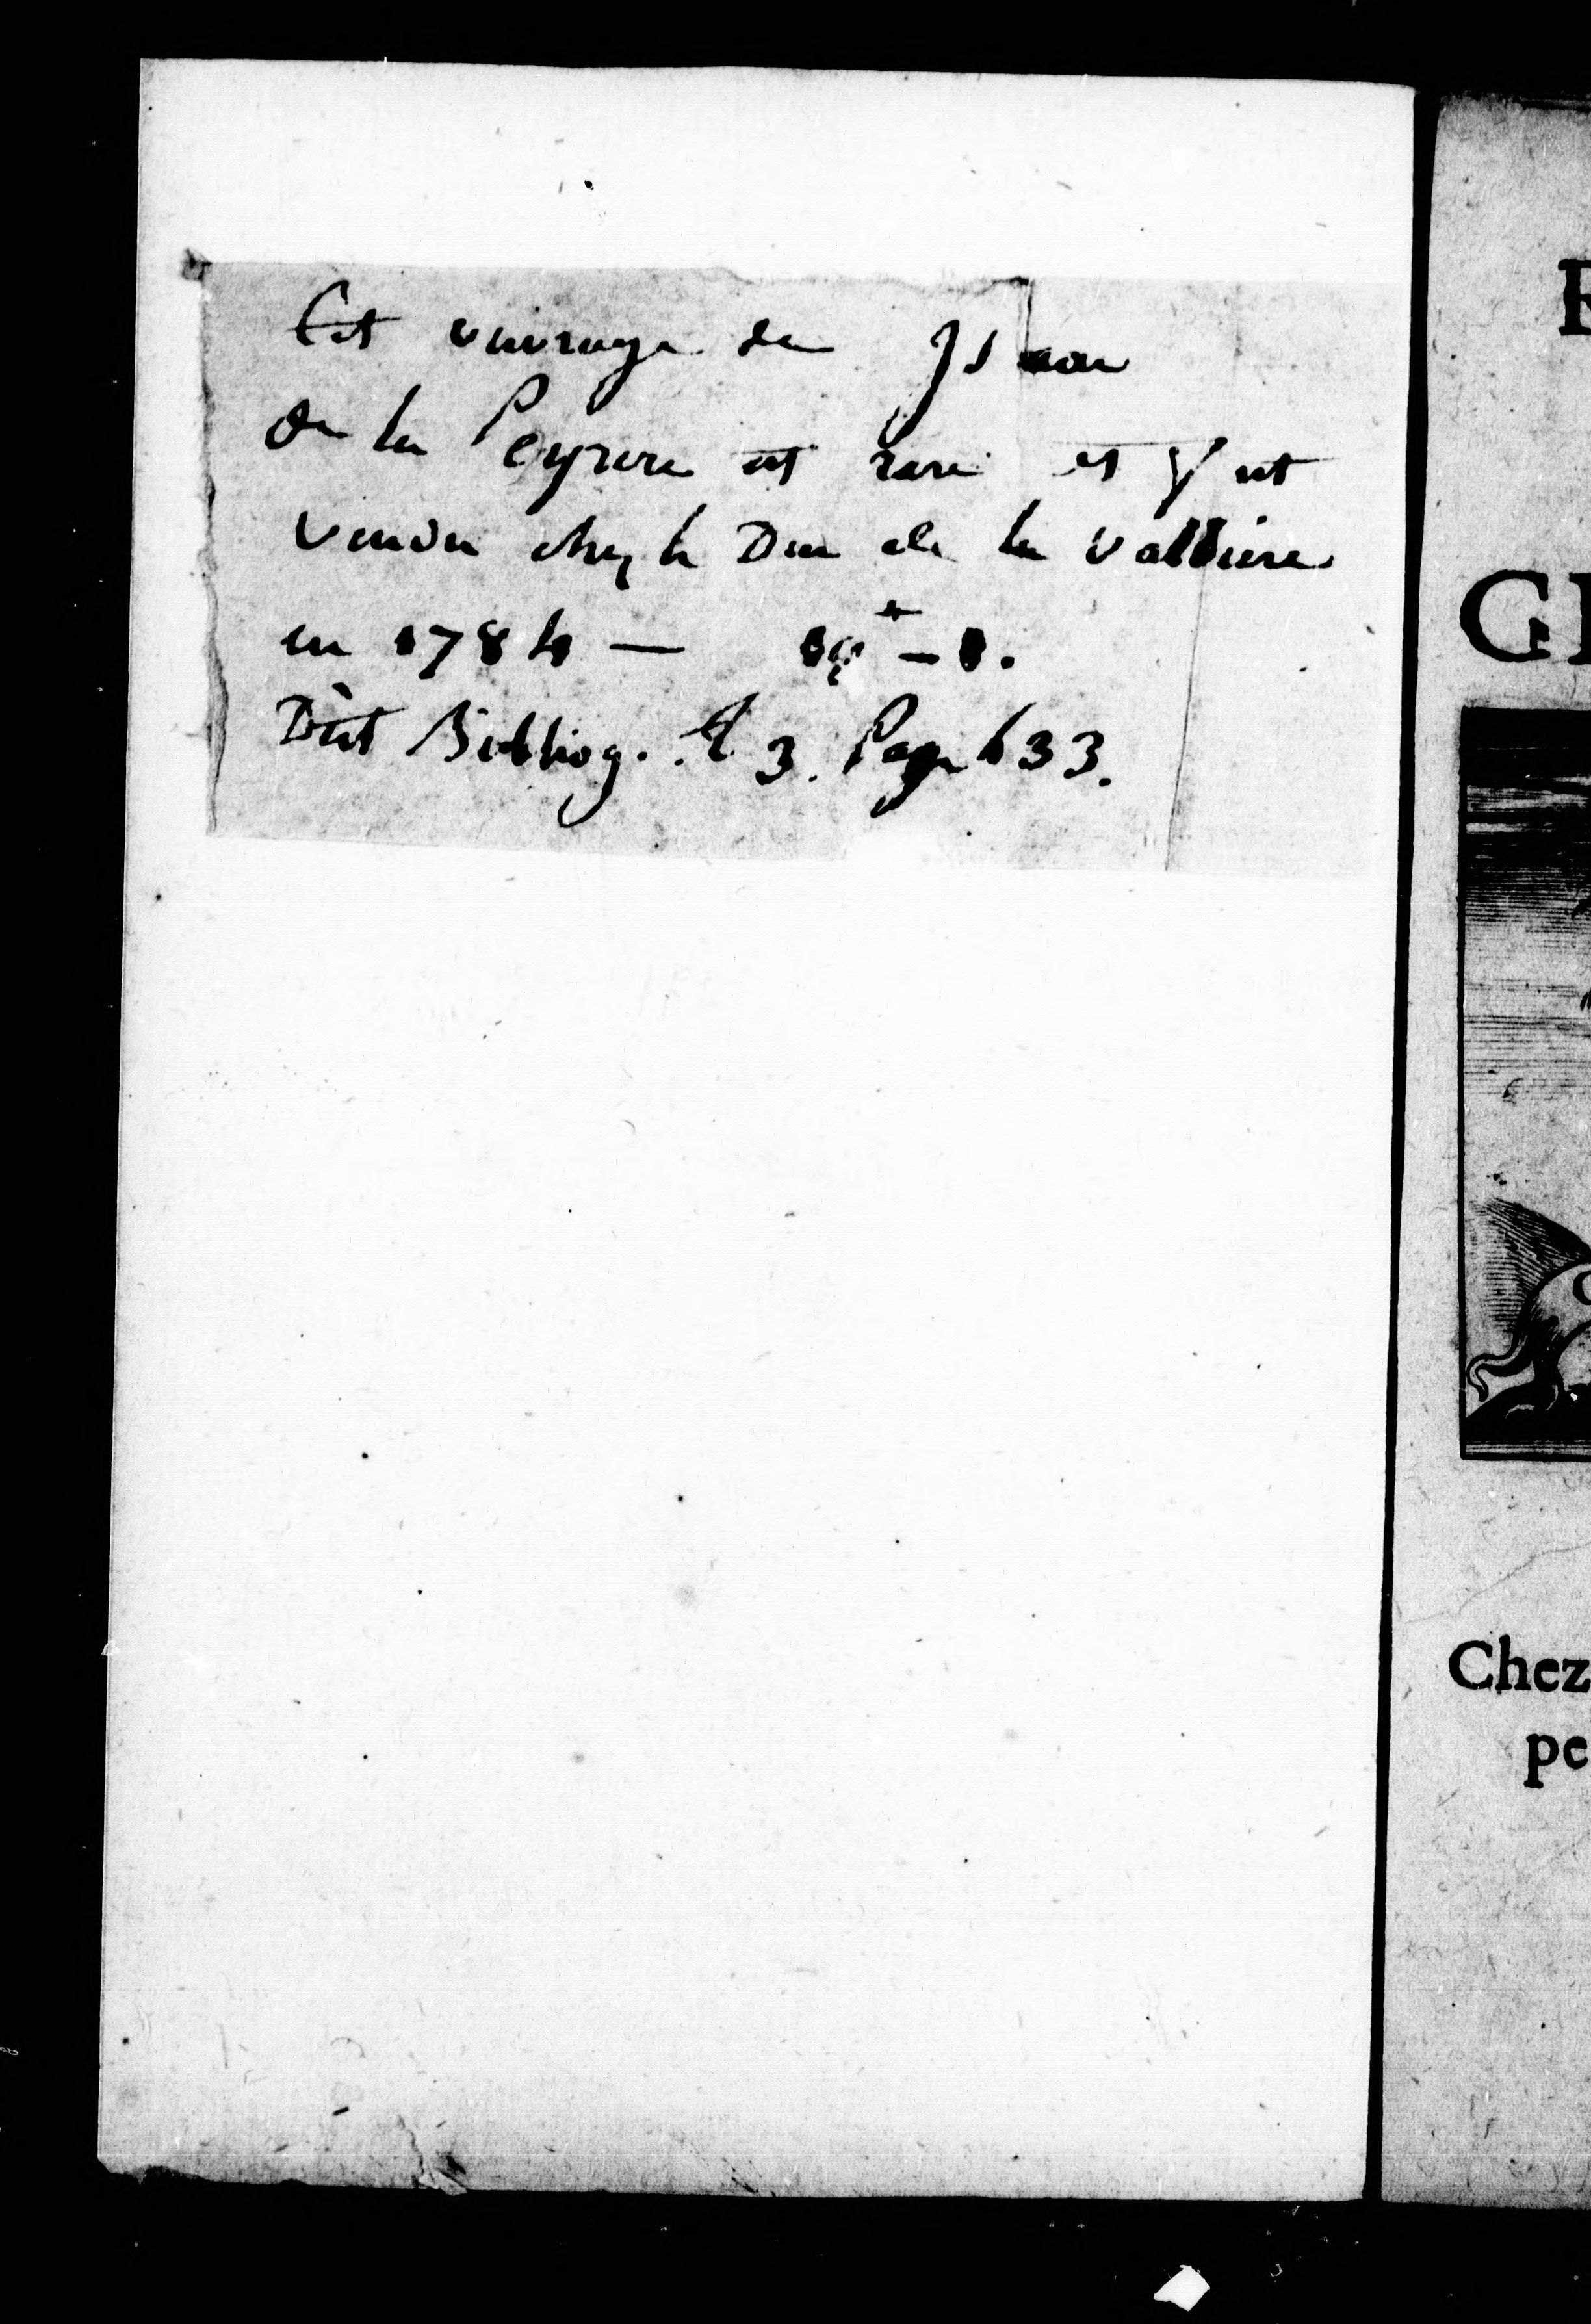 Cet ouvrage de Is
de la Peyrere est rare et fut
vendu chez le Duc de la Valliere
en 1784 —
Dict Bibliog. t 3. Page 433.
GI
Chez
pe